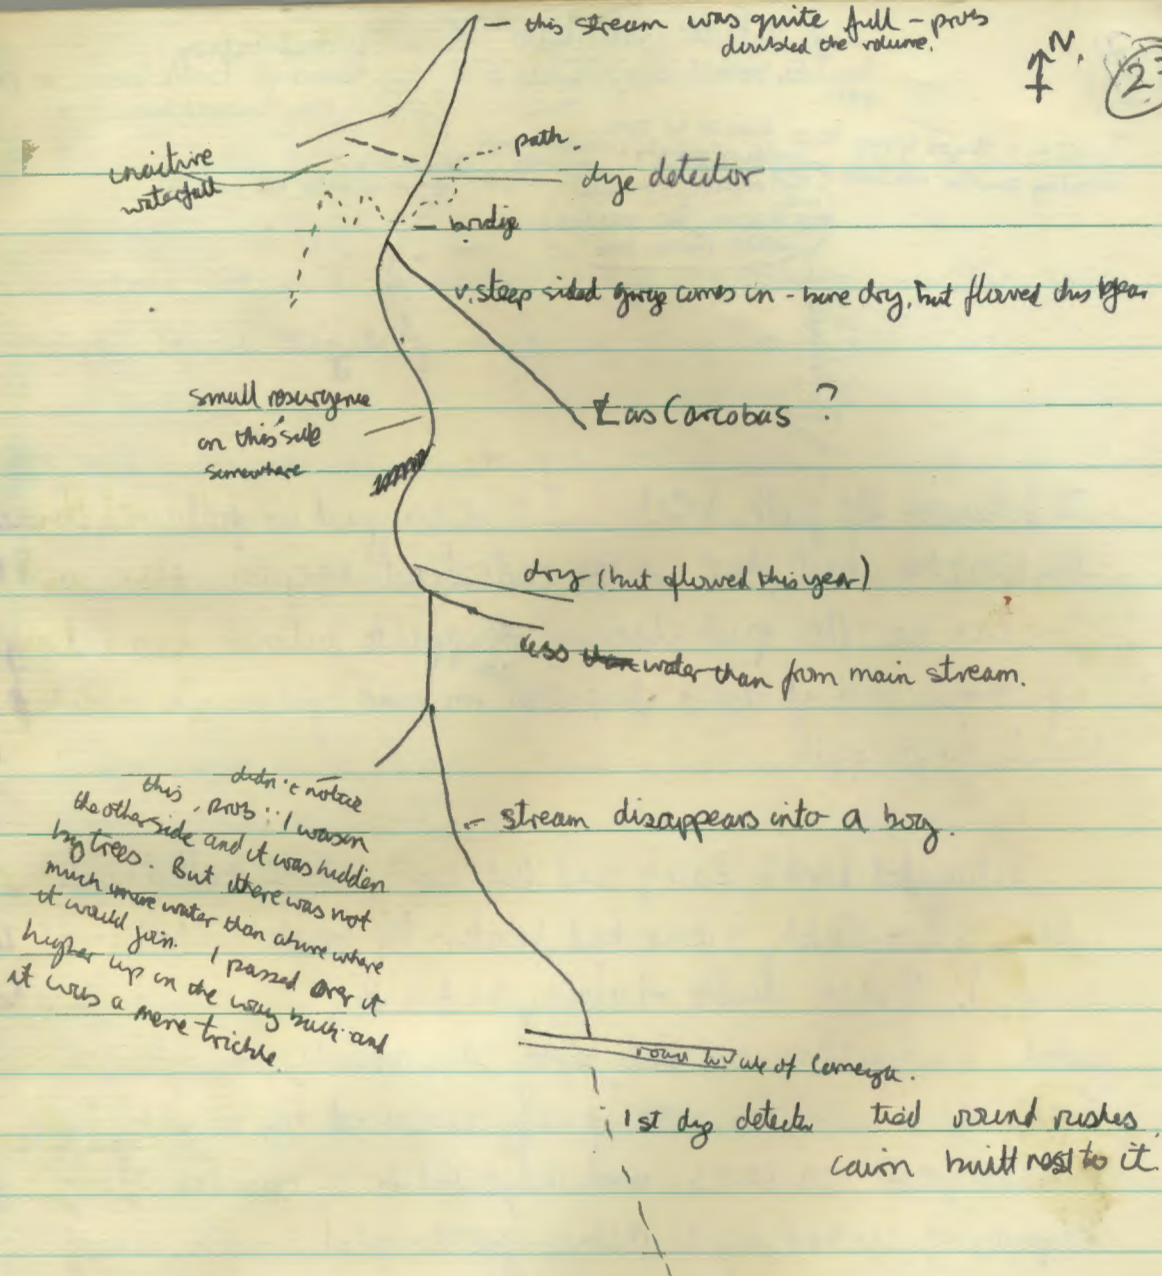 — this stream was quite full – prob
doubled the volume.
N.
2
path.
inactive
waterfall
dye detector
— bridge
v. steep sided gorge comes in - bone dry, but flowed this year
small resurgence
on this side
somewhere
Las Carcobas ?
dry (but flowed this year)
less than water than from main stream.
didn't notice
this, prob ∵ I was on
the other side and it was hidden
by trees. But there was not
much more water than above where
it would join. I passed over it
higher up on the way back and
it was a mere trickle.
— stream disappears into a bog.
of
1st dye detector tied round rushes.
cairn built next to it.